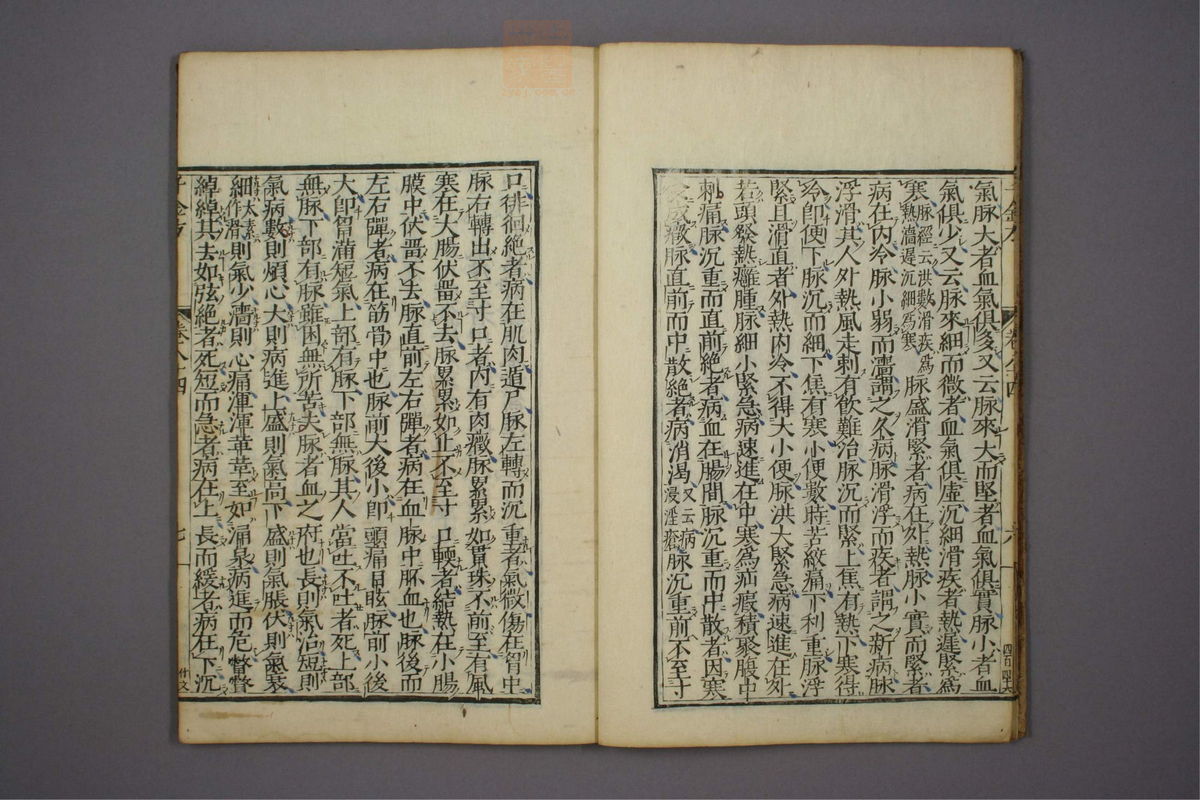 氣脉大者血氣俱多又云脉來大而堅者血氣俱實脉小者血
氣俱少又云脉來細而微者血氣俱虛沉細滑疾者熱遲緊爲
寒脉經云洪數滑疾爲熱濇遲沉細爲寒脉盛滑緊者病在外熱脉小實而緊者
病在內冷脉小弱而濇謂之久病脉滑浮而疾者謂之新病脉
浮滑其人外熱風走刺有飲難治脉沉而緊上焦有熱下寒得
冷即便下脉沉而細下焦有寒小便數時苦絞痛下利重脉浮
緊且滑直者外熱內冷不得大小便脉洪大緊急病速進在外
苦頭發熱癰腫脉細小緊急病速進在中寒爲疝瘕積聚腹中
刺痛脉沉重而直前絶者病血在腸間脉沉重而中散者因寒
食成癥脉直前而中散絶者病消渴又云病浸淫瘡脉沉重前不至寸
口徘徊絶者病在肌肉遁尸脉左轉而沉重者氣微傷在胷中
脉右轉出不至寸口者內有肉癥脉累累如貫珠不前至有風
寒在大腸伏畱不去脉累累如止不至寸口輭者結熱在小腸
膜中伏畱不去脉直前左右彈者病在血脉中胚血也脉後而
左右彈者病在筋骨中也脉前大後小即頭痛目眩脉前小後
大即胷滿短氣上部有脉下部無脉其人當吐不吐者死上部
無脉下部有脉雖困無所苦夫脉者血之府也長則氣治短則
氣病數則煩心大則病進上盛則氣高下盛則氣脹代則氣衰
細太素作滑則氣少濇則心痛渾渾革革至如涌泉病進而危弊弊
綽綽其去如弦絶者死短而急者病在上長而緩者病在下沉
卷八十四
七